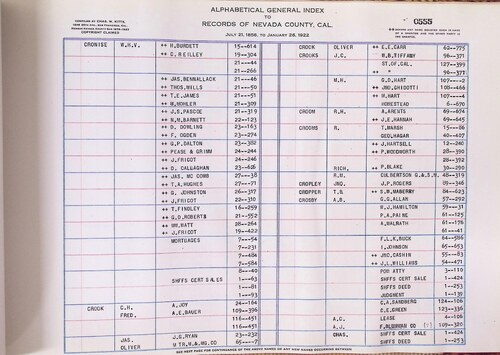 ALPHABETICAL GENERAL INDEX
TO
RECORDS OF NEVADA COUNTY, CAL.
JULY 21, 1856, TO JANUARY 26, 1922
COPYRIGHT CLAIMED
0555
CRONISE W.H.V. ++ H.BURDETT 15--614
++ C.REILLEY 19--304
21---44
21--266
++ JAS.BENNALLACK 21---46
++ THOS.MILLS 21---50
++ T.E.JAMES 21---51
++ M.MOHLER 21--309
++ J.S.PASCOE 21--319
++ R.M.BARNETT 22--123
++ B. DOWLING 23--163
++ F. OGDEN 23--274
++ G.P.DALTON 23--382
++ PEASE & GRIMM 24--244
++ J.FRICOT 24--246
++ D. CALLAGHAN 23--626
++ JAS. MC COMB 27---38
++ T.A.HUGHES 27---71
++ G. JOHNSTON 26--317
++ J.FRICOT 22--310
++ T.FINDLEY 16--259
++ G.D.ROBERTS 21--552
++ WM.WATT 28--264
++ J.FRICOT 19--422
MORTGAGES 7---54
7--231
7--484
7--531
8---48
1---63
SHFFS CERT SALES 1---81
1---93
CROOK C.H. A.JOY 24--164
FRED. A.E.BAUER 105--396
116--451
116--451
JAS. J.G.RYAN 23--232
OLIVER M TR,M.A,MG.CO 65---7
CROOK OLIVER ++ E.E.CARR 62--775
CROOKS J.C. ++ B.W.TIBBEY 96--371
ST.OF CAL. 127--399
++ " 96--371
M.H. G.D.HART 107---2
++ JNO.GHIDOTTI 108--466
++ M.HART 107---4
HOMESTEAD 6--670
CROOM R.H. A.ARENTS 69--674
++ J.E.HANNAH 69--645
CROOMS R. T.MARSH 15---86
GEO.HAGAR 40--407
++ J.HARTSOLL 12--240
++ P.WOODWORTH 28--390
28--372
28--390
RICH. ++ P.BLAKE 30--290
R.M. CULBERTSON G.& S.M. 48--319
CROPLEY JNO. J.P.ROGERS 89--346
CROPPER T.B. ++ S.W.MABERRY 84--623
CROSBY A.B. G.G.ALLAN 57--292
H.J.HAMILTON 59---31
P.A.PAINE 61--125
A.WALRATH 61--176
61--41
F.L.K.BUCK 64--586
I.JOHNSON 65--653
++ JNO.CASHIN 55---83
++ J.L.WILLIAMS 54--471
POW ATTY 3--110
SHFFS CERT SALE 1--424
SHFFS DEED 1--253
JUDGMENT 1--139
C.A.SANDBERG 124--106
C.E.GREEN 123--336
A.G. LEASE 4--106
A.J. 109--320
CHAS. SHFFS CERT SALE 1--424
SHFFS DEED 1--253
SEE NEXT PAGE FOR CONTINUANCE OF THE ABOVE NAMES OR ANY NEW NAMES OCCURRING BETWEEN